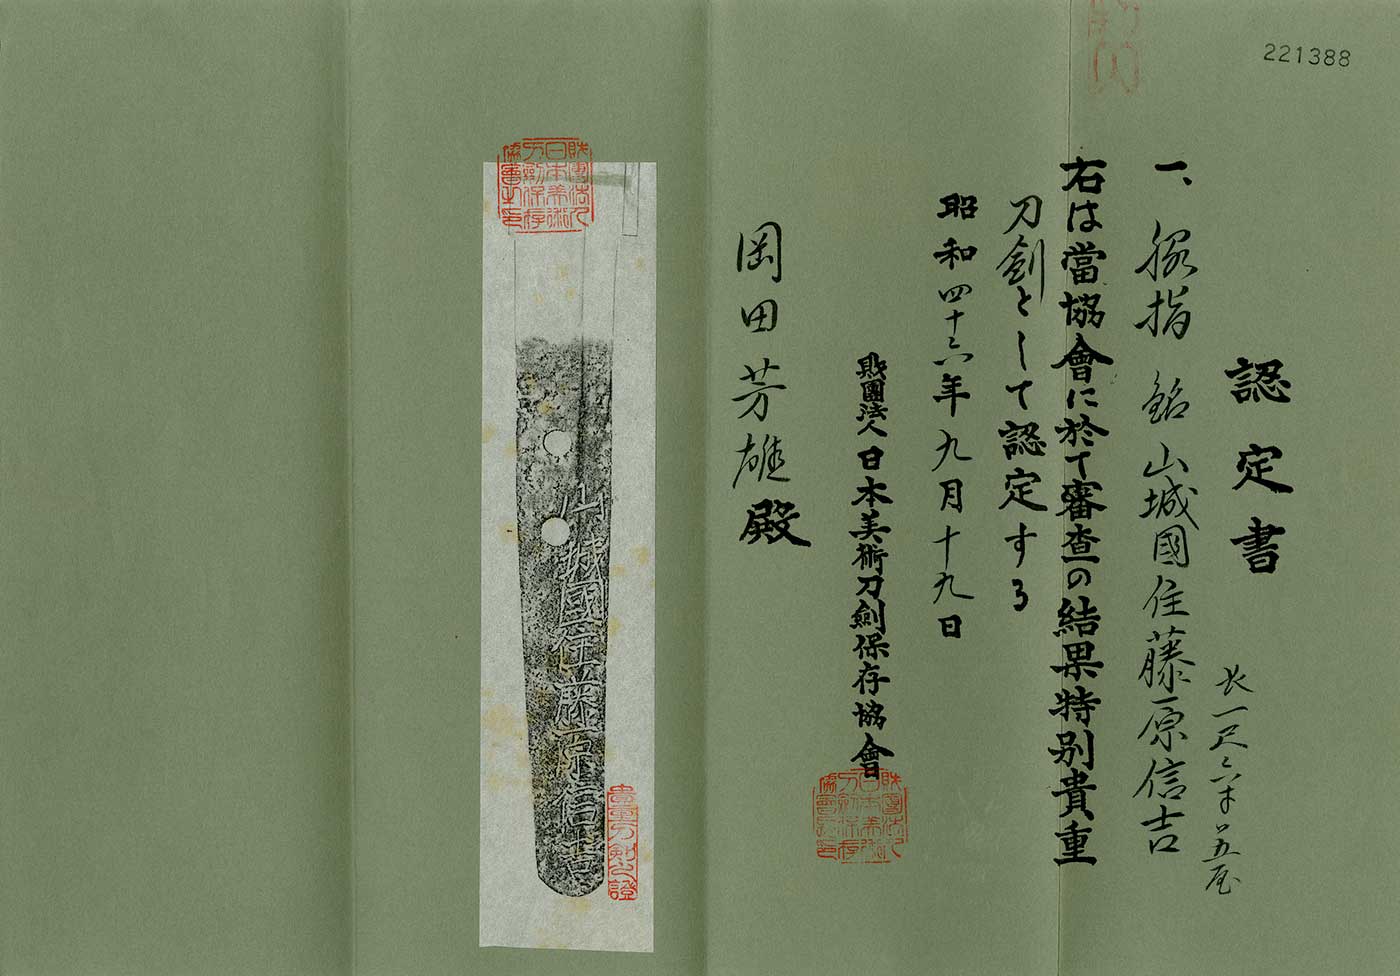 221388
認定書
一、脇指 銘 山城國住藤原信吉
長一尺六寸五分
右は當協會に於て審査の結果特別貴重
刀劍として認定する
昭和四十六年九月十九日
財團法人日本美術刀劍保存協會
財團法人日本美術刀劍保存協會之印
岡田芳雄殿
財團法人日本美術刀劍保存協會之印
山城國住藤原信吉
貴重刀剣之證